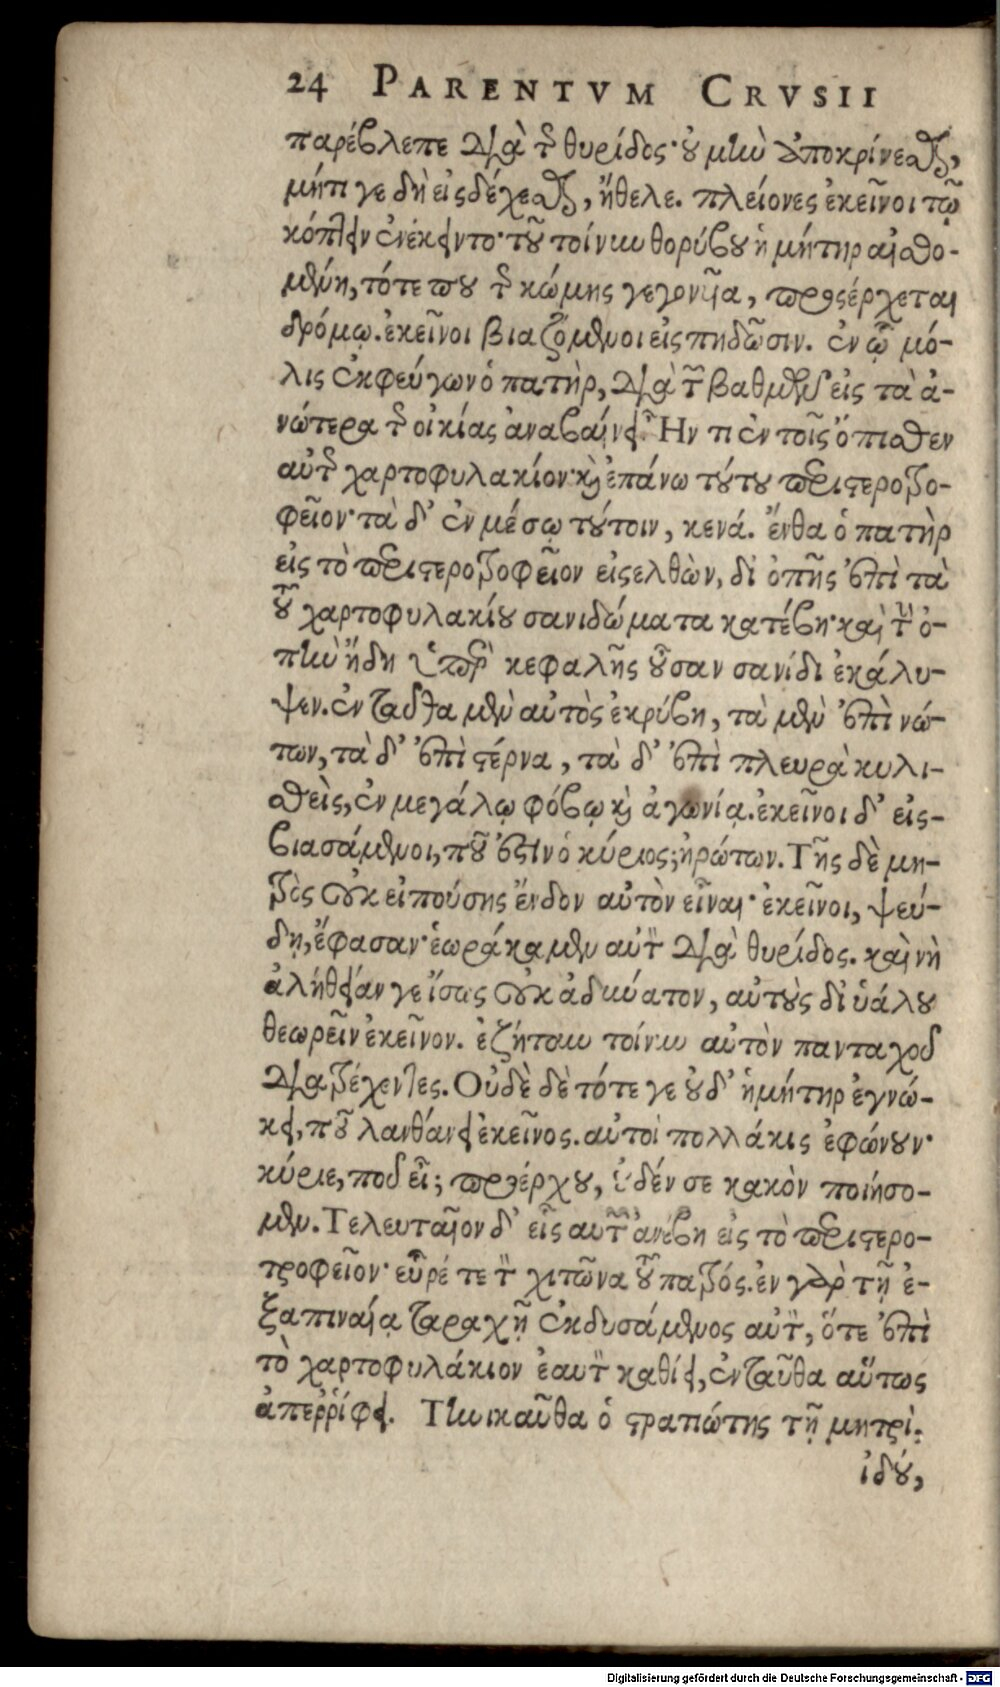 24 PARENTVM CRVSII
παρέβλεπε διὰ τῆς θυρίδος· οὐ μὴν ἀποκρίνεσθαι,
μήτι γε δὴ εἰσδέχεσθαι, ἤθελε. πλείονες ἐκεῖνοι τῷ
κόπτειν ἐνέκειντο· τοῦ τοίνυν θορύβου ἡ μήτηρ αἰσθο-
μένη, τότε που τῆς κώμης γεγονυῖα, προσέρχεται
δρόμῳ. ἐκεῖνοι βιαζόμενοι εἰσπηδῶσιν. ἐν ᾧ μό-
λις ἐκφεύγων ὁ πατὴρ, διὰ τῶν βαθμῶν εἰς τὰ ἀ-
νώτερα τῆς οἰκίας ἀναβαίνει. Ἦν τι ἐν τοῖς ὄπισθεν
αὐτῆς χαρτοφυλακίον· καὶ ἐπάνω τούτου περιστεροτρο-
φεῖον· τὰ δ' ἐν μέσῳ τούτοιν, κενά. ἔνθα ὁ πατὴρ
εἰς τὸ περιστεροτροφεῖον εἰσελθὼν, δι' ὀπῆς ἐπὶ τὰ
τοῦ χαρτοφυλακίου σανιδώματα κατέβη· καὶ τὴν ὀ-
πὴν ἤδη ὑπὲρ κεφαλῆς οὖσαν σανίδι ἐκάλυ-
ψεν. ἐνταῦθα μὲν αὐτὸς ἐκρύβη, τὰ μὲν ἐπὶ νώ-
των, τὰ δ' ἐπὶ στέρνα, τὰ δ' ἐπὶ πλευρὰ κυλι-
σθεὶς, ἐν μεγάλῳ φόβῳ καὶ ἀγωνίᾳ. ἐκεῖνοι δ' εἰσ-
βιασάμενοι, ποῦ ἐστιν ὁ κύριος; ἠρώτων. Τῆς δὲ μη-
τρὸς οὐκ εἰπούσης ἔνδον αὐτὸν εἶναι· ἐκεῖνοι, ψεύ-
δῃ, ἔφασαν· ἑωράκαμεν αὐτὸν διὰ θυρίδος. καὶ νὴ
ἀλήθειάν γε ἴσως οὐκ ἀδύνατον, αὐτοὺς δι' ὑάλου
θεωρεῖν ἐκεῖνον. ἐζήτουν τοίνυν αὐτὸν πανταχοῦ
διατρέχοντες. Οὐδὲ δὲ τότε γε οὐδ' ἡ μήτηρ ἐγνώ-
κει, ποῦ λανθάνει ἐκεῖνος. αὐτοὶ πολλάκις ἐφώνουν·
κύριε, ποῦ εἶ; προέρχου, οὐδέν σε κακὸν ποιήσο-
μεν. Τελευταῖον δ' εἷς αὐτῶν ἀνέβη εἰς τὸ περιστερο-
τροφεῖον· εὗρέ τε τὸν χιτῶνα τοῦ πατρός. ἐν γὰρ τῇ ἐ-
ξαπιναίᾳ ταραχῇ ἐκδυσάμενος αὐτὸν, ὅτε ἐπὶ
τὸ χαρτοφυλάκιον ἑαυτὸν καθίει, ἐνταῦθα αὕτως
ἀπεῤῥίφει. Τηνικαῦθα ὁ στρατιώτης τῇ μητρί·
ἰδού,
Digitalisierung gefördert durch die Deutsche Forschungsgemeinschaft - DFG